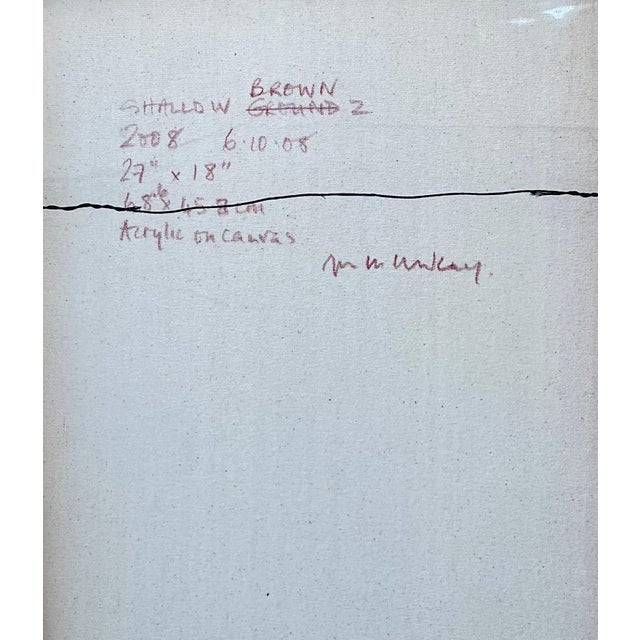 BROWN
SHALLOW GROUND 2
2008 6.10.08
27" x 18"
45.8 cm
Acrylic on canvas